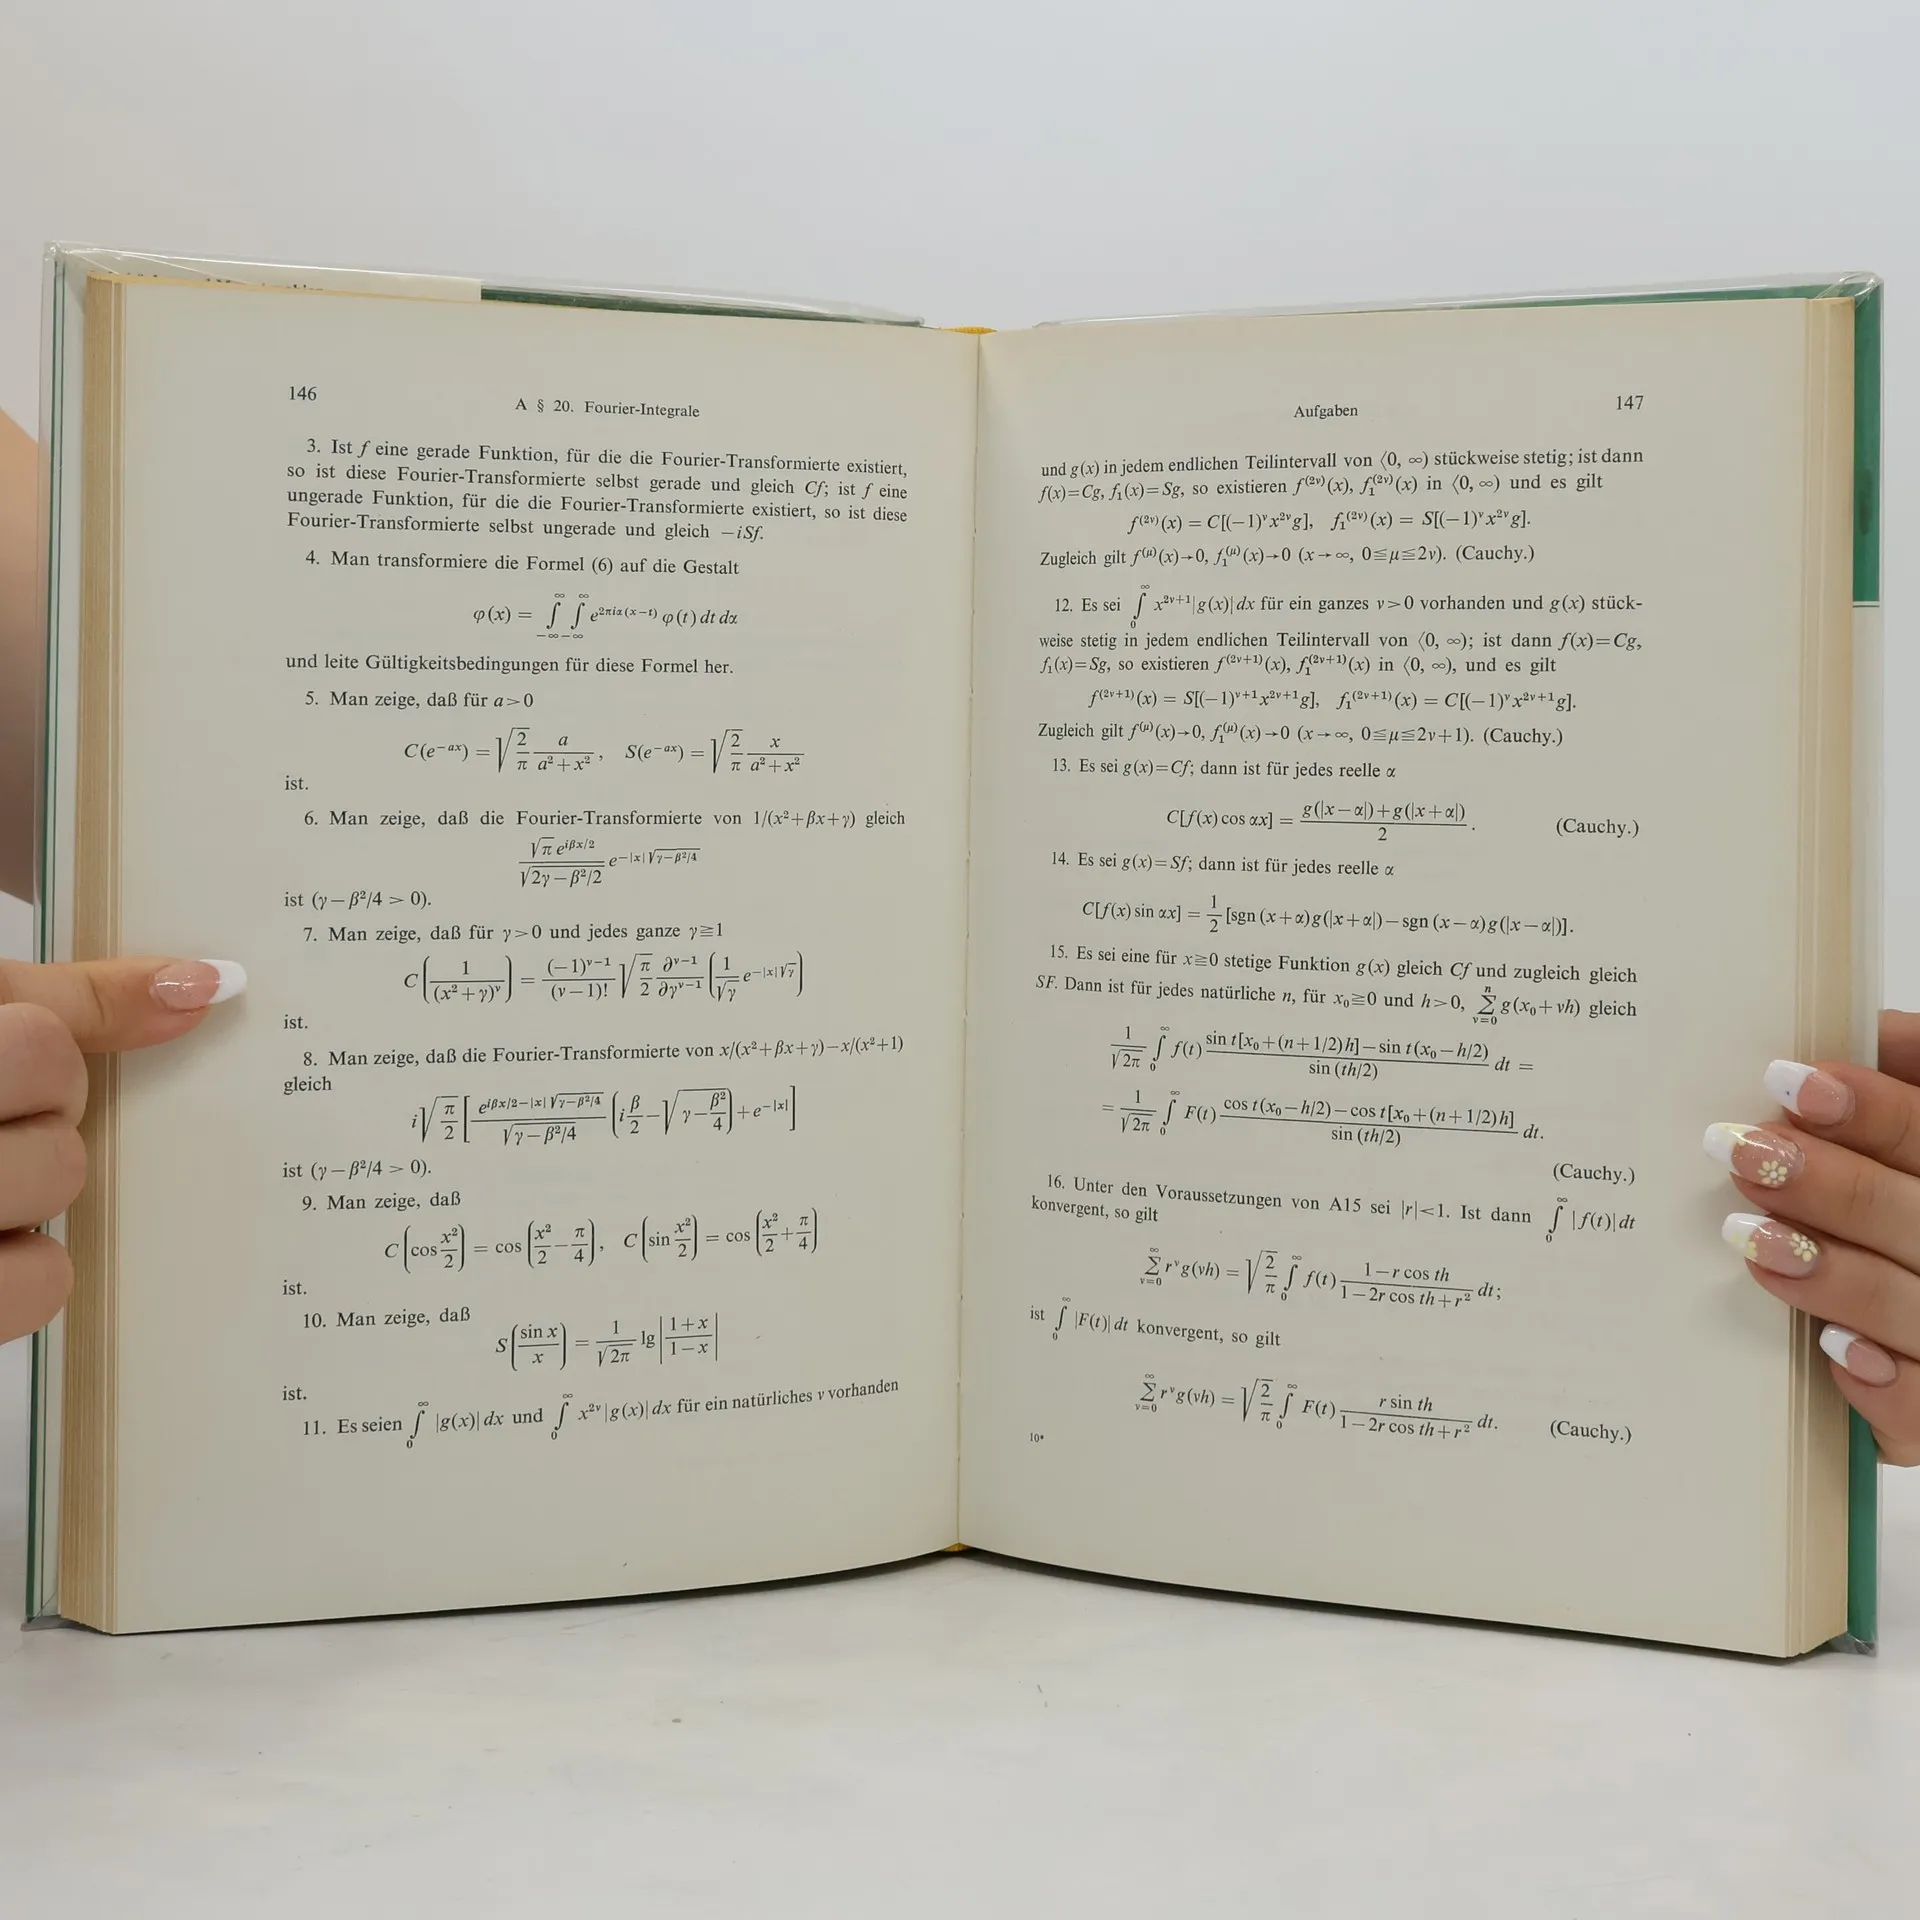 146
A § 20. Fourier-Integrale
3. Ist f eine gerade Funktion, für die die Fourier-Transformierte existiert,
so ist diese Fourier-Transformierte selbst gerade und gleich Cf; ist f eine
ungerade Funktion, für die die Fourier-Transformierte existiert, so ist diese
Fourier-Transformierte selbst ungerade und gleich −iSf.
4. Man transformiere die Formel (6) auf die Gestalt
φ(x) = ∫_{−∞}^{∞} ∫_{−∞}^{∞} e^{2πiα(x−t)} φ(t) dt dα
und leite Gültigkeitsbedingungen für diese Formel her.
5. Man zeige, daß für a>0
C(e^{−ax}) = √(2/π) a/(a²+x²), S(e^{−ax}) = √(2/π) x/(a²+x²)
ist.
6. Man zeige, daß die Fourier-Transformierte von 1/(x²+βx+γ) gleich
(√π e^{iβx/2})/(√(2γ−β²/2)) e^{−|x|√(γ−β²/4)}
ist (γ−β²/4 > 0).
7. Man zeige, daß für γ>0 und jedes ganze γ≧1
C(1/(x²+γ)^ν) = ((−1)^{ν−1})/((ν−1)!) √(π/2) ∂^{ν−1}/∂γ^{ν−1} (1/√γ e^{−|x|√γ})
ist.
8. Man zeige, daß die Fourier-Transformierte von x/(x²+βx+γ)−x/(x²+1)
gleich
i√(π/2) [e^{iβx/2−|x|√(γ−β²/4)}/√(γ−β²/4) (i β/2 − √(γ−β²/4)) + e^{−|x|}]
ist (γ−β²/4 > 0).
9. Man zeige, daß
C(cos x²/2) = cos(x²/2 − π/4), C(sin x²/2) = cos(x²/2 + π/4)
ist.
10. Man zeige, daß
S(sin x/x) = 1/√(2π) lg |(1+x)/(1−x)|
ist.
11. Es seien ∫_0^∞ |g(x)| dx und ∫_0^∞ x^{2ν} |g(x)| dx für ein natürliches ν vorhanden
Aufgaben
147
und g(x) in jedem endlichen Teilintervall von ⟨0, ∞) stückweise stetig; ist dann
f(x)=Cg, f₁(x)=Sg, so existieren f^{(2ν)}(x), f₁^{(2ν)}(x) in ⟨0, ∞) und es gilt
f^{(2ν)}(x) = C[(−1)^ν x^{2ν} g], f₁^{(2ν)}(x) = S[(−1)^ν x^{2ν} g].
Zugleich gilt f^{(μ)}(x)→0, f₁^{(μ)}(x)→0 (x→∞, 0≦μ≦2ν). (Cauchy.)
12. Es sei ∫_0^∞ x^{2ν+1}|g(x)| dx für ein ganzes ν>0 vorhanden und g(x) stück-
weise stetig in jedem endlichen Teilintervall von ⟨0, ∞); ist dann f(x)=Cg,
f₁(x)=Sg, so existieren f^{(2ν+1)}(x), f₁^{(2ν+1)}(x) in ⟨0, ∞), und es gilt
f^{(2ν+1)}(x) = S[(−1)^{ν+1} x^{2ν+1} g], f₁^{(2ν+1)}(x) = C[(−1)^ν x^{2ν+1} g].
Zugleich gilt f^{(μ)}(x)→0, f₁^{(μ)}(x)→0 (x→∞, 0≦μ≦2ν+1). (Cauchy.)
13. Es sei g(x)=Cf; dann ist für jedes reelle α
C[f(x) cos αx] = (g(|x−α|)+g(|x+α|))/2. (Cauchy.)
14. Es sei g(x)=Sf; dann ist für jedes reelle α
C[f(x) sin αx] = 1/2 [sgn (x+α)g(|x+α|)−sgn (x−α)g(|x−α|)].
15. Es sei eine für x≧0 stetige Funktion g(x) gleich Cf und zugleich gleich
SF. Dann ist für jedes natürliche n, für x₀≧0 und h>0, Σ_{ν=0}^{n} g(x₀+νh) gleich
1/√(2π) ∫_0^∞ f(t) (sin t[x₀+(n+1/2)h]−sin t(x₀−h/2))/(sin (th/2)) dt =
= 1/√(2π) ∫_0^∞ F(t) (cos t(x₀−h/2)−cos t[x₀+(n+1/2)h])/(sin (th/2)) dt.
(Cauchy.)
16. Unter den Voraussetzungen von A15 sei |r|<1. Ist dann ∫_0^∞ |f(t)| dt
konvergent, so gilt
Σ_{ν=0}^{∞} r^ν g(νh) = √(2/π) ∫_0^∞ f(t) (1−r cos th)/(1−2r cos th+r²) dt;
ist ∫_0^∞ |F(t)| dt konvergent, so gilt
Σ_{ν=0}^{∞} r^ν g(νh) = √(2/π) ∫_0^∞ F(t) (r sin th)/(1−2r cos th+r²) dt. (Cauchy.)
10*